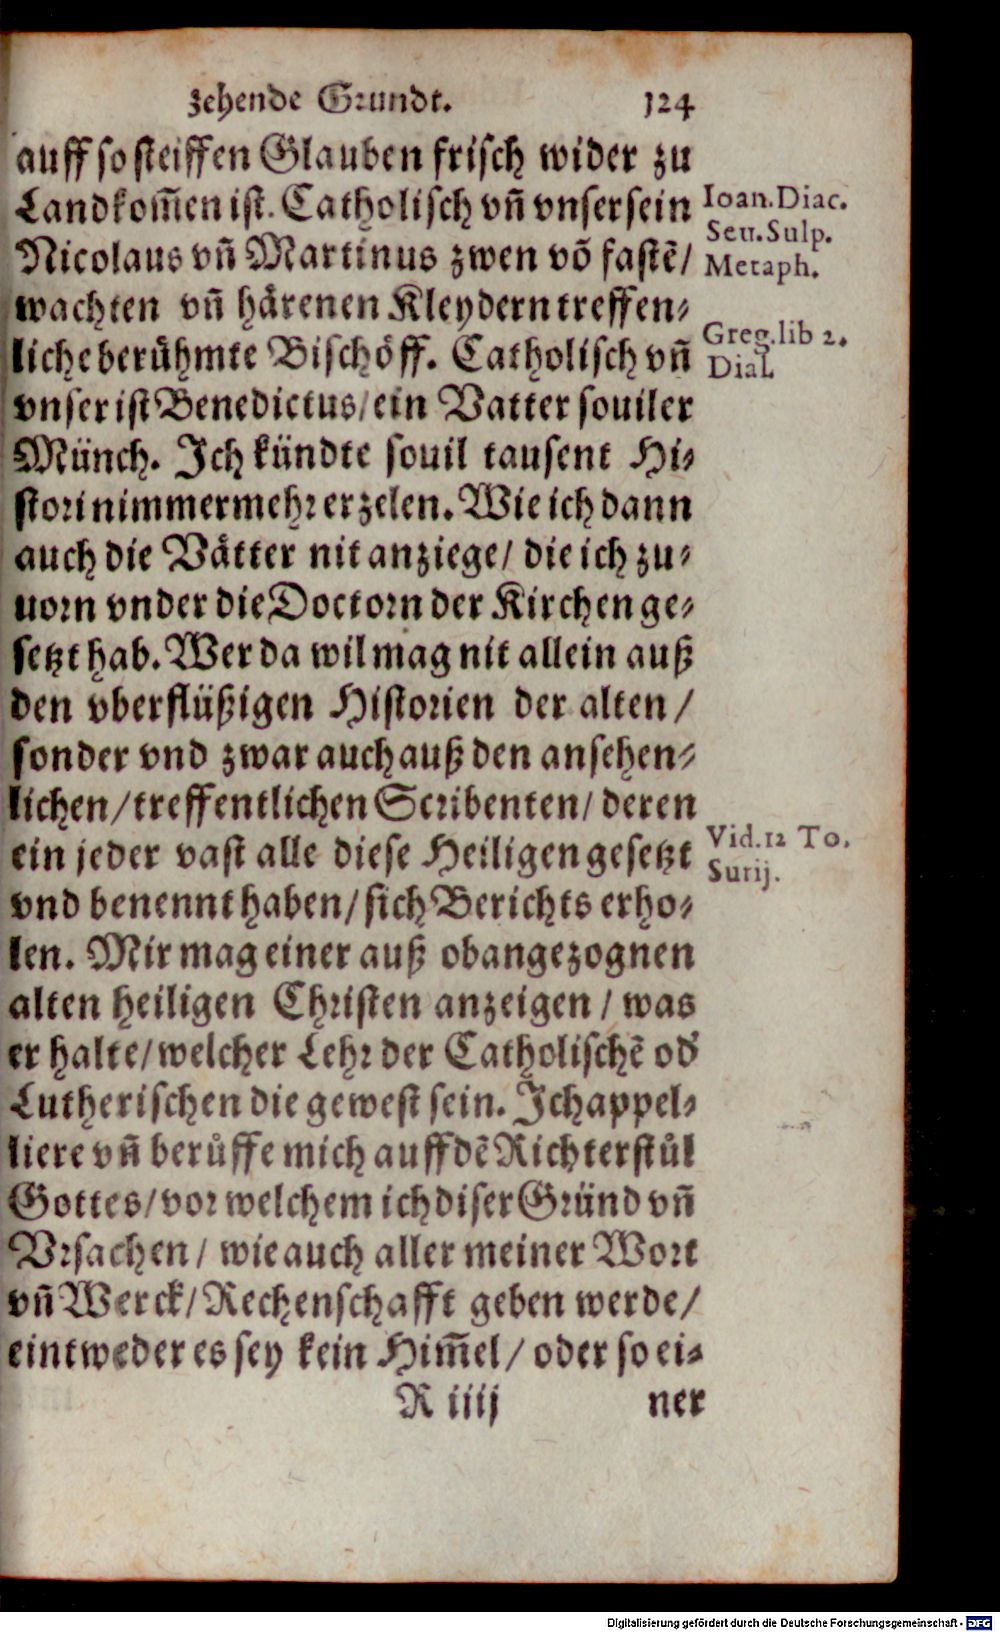 zehende Grundt. 124
auff so steiffen Glauben frisch wider zu
Land kom̃en ist. Catholisch vñ vnser sein
Ioan. Diac.
Seu. Sulp.
Nicolaus vñ Martinus zwen võ fastẽ/
Metaph.
wachten vñ hårenen Kleydern treffen⸗
liche berůhmte Bischöff. Catholisch vñ
Greg. lib 2.
Dial.
vnser ist Benedictus/ ein Vatter souiler
Münch. Ich kündte souil tausent Hi⸗
stori nimmermehr erzelen. Wie ich dann
auch die Våtter nit anziege/ die ich zu⸗
uorn vnder die Doctorn der Kirchen ge⸗
setzt hab. Wer da wil mag nit allein auß
den vberflüßigen Historien der alten/
sonder vnd zwar auch auß den ansehen⸗
lichen/ treffentlichen Scribenten/ deren
ein jeder vast alle diese Heiligen gesetzt
Vid. 12 To.
Surij.
vnd benennt haben/ sich Berichts erho⸗
len. Mir mag einer auß obangezognen
alten heiligen Christen anzeigen/ was
er halte/ welcher Lehr der Catholischẽ od'
Lutherischen die gewest sein. Ich appel⸗
liere vñ berůffe mich auff dẽ Richterstůl
Gottes/ vor welchem ich diser Gründ vñ
Vrsachen/ wie auch aller meiner Wort
vñ Werck/ Rechenschafft geben werde/
eintweder es sey kein Him̃el/ oder so ei⸗
R iiij ner
Digitalisierung gefördert durch die Deutsche Forschungsgemeinschaft - DFG